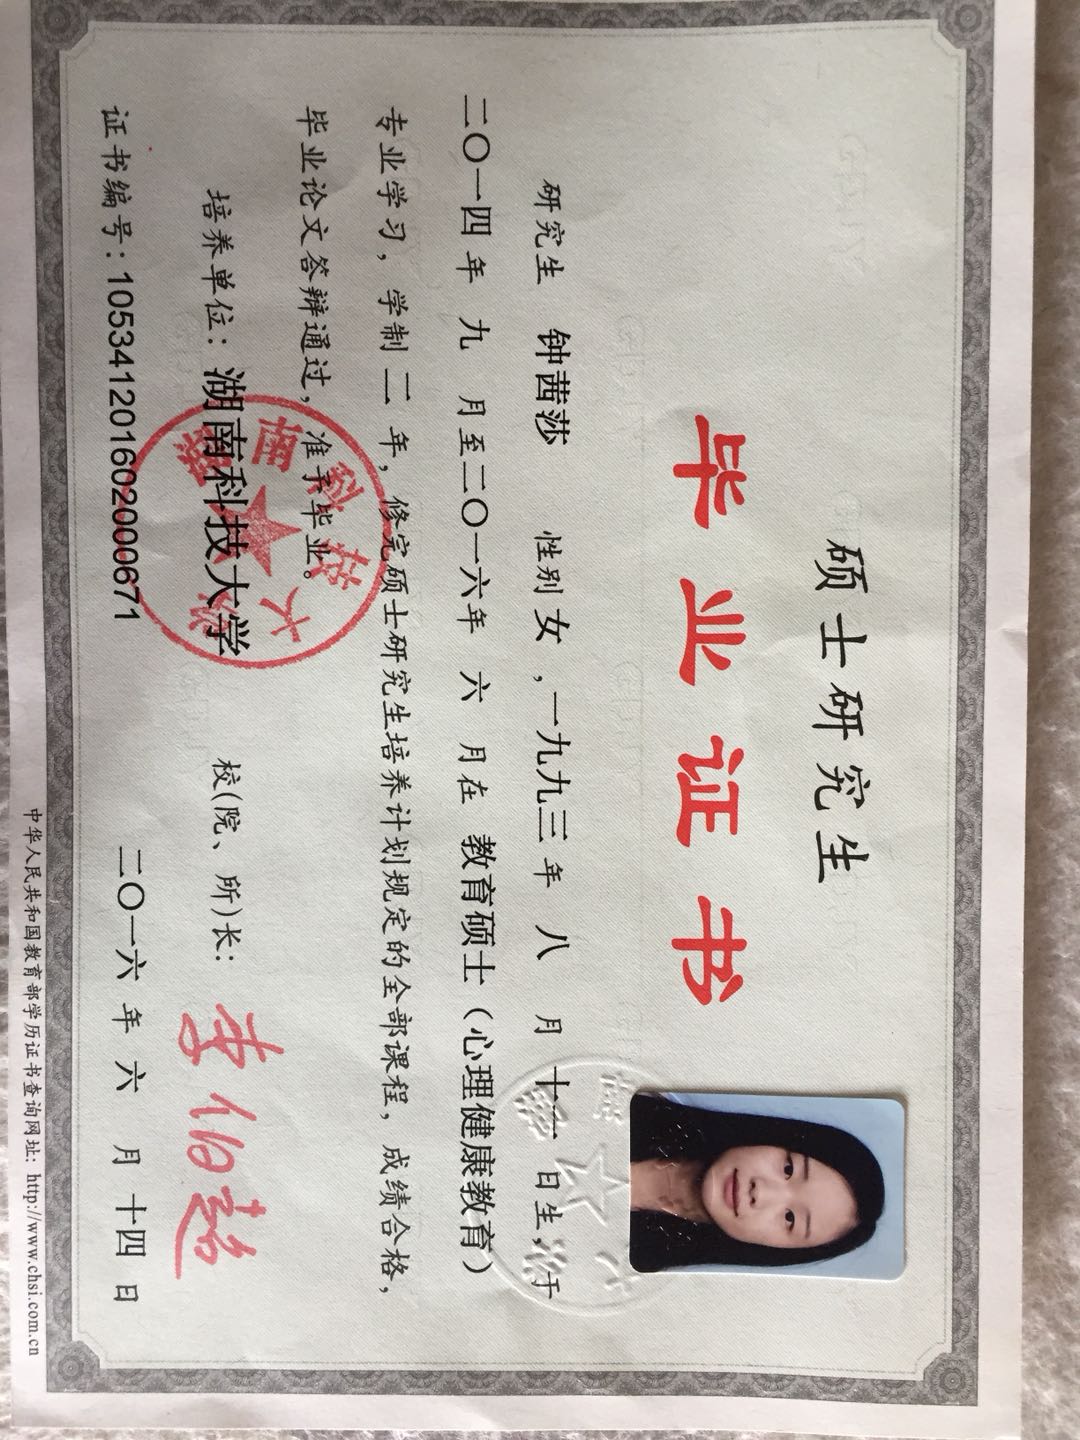 硕士研究生
毕业证书
研究生 钟茜莎 性别 女，一九九三年 八 月 十一 日生，于
二〇一四年 九 月至二〇一六年 六 月在 教育硕士（心理健康教育）
专业学习，学制 二 年，修完硕士研究生培养计划规定的全部课程，成绩合格，
毕业论文答辩通过，准予毕业。
培养单位：湖南科技大学 校(院、所)长：李伯超
证书编号：105341201602000671 二〇一六 年 六 月 十四 日
中华人民共和国教育部学历证书查询网址：http://www.chsi.com.cn